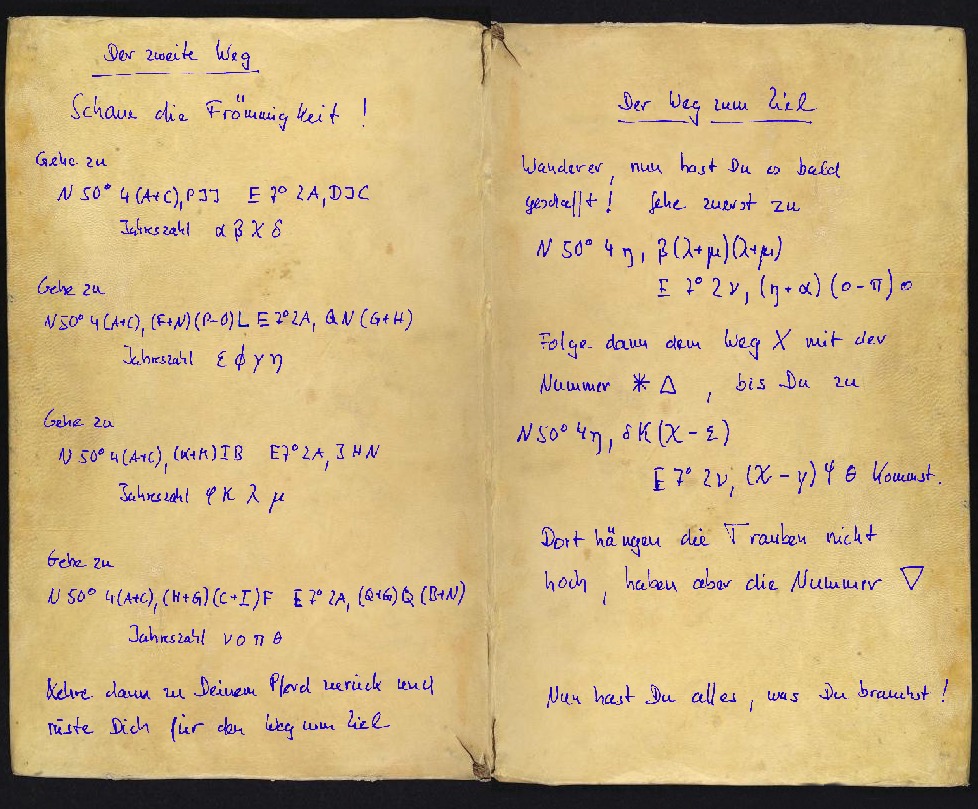 Der zweite Weg
Schaue die Frömmigkeit !
Gehe zu
N 50° 4(A+C),PJJ E 7° 2A,DJC
Jahreszahl α β χ δ
Gehe zu
N50° 4(A+C), (F+N)(P-O)L E 7° 2A, QN(G+H)
Jahreszahl ε ϕ γ η
Gehe zu
N 50° 4(A+C), (K+M)IB E7° 2A, JHN
Jahreszahl φ K λ μ
Gehe zu
N 50° 4(A+C), (H+G)(C+I)F E 7° 2A, (Q+G)Q(B+N)
Jahreszahl ν ο π θ
Kehre dann zu Deinem Pferd zurück und
rüste Dich für den Weg zum Ziel
Der Weg zum Ziel
Wanderer, nun hast Du es bald
geschafft! Gehe zuerst zu
N 50° 4 η, β(λ+μ)(λ+μ)
E 7° 2ν, (η+α)(ο-π) ο
Folge dann dem Weg X mit der
Nummer * Δ , bis Du zu
N50° 4η, δK(χ-ε)
E 7° 2ν, (χ-γ) φ θ kommst.
Dort hängen die Trauben nicht
hoch, haben aber die Nummer ▽
Nun hast Du alles, was Du brauchst!